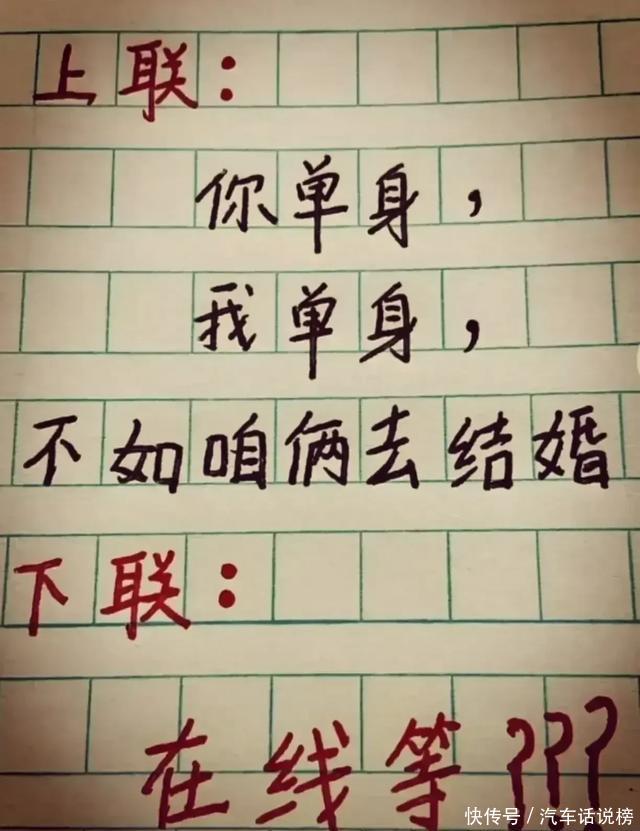 上联：
你单身，
我单身，
不如咱俩去结婚
下联：
在线等???
快传号／汽车话说榜